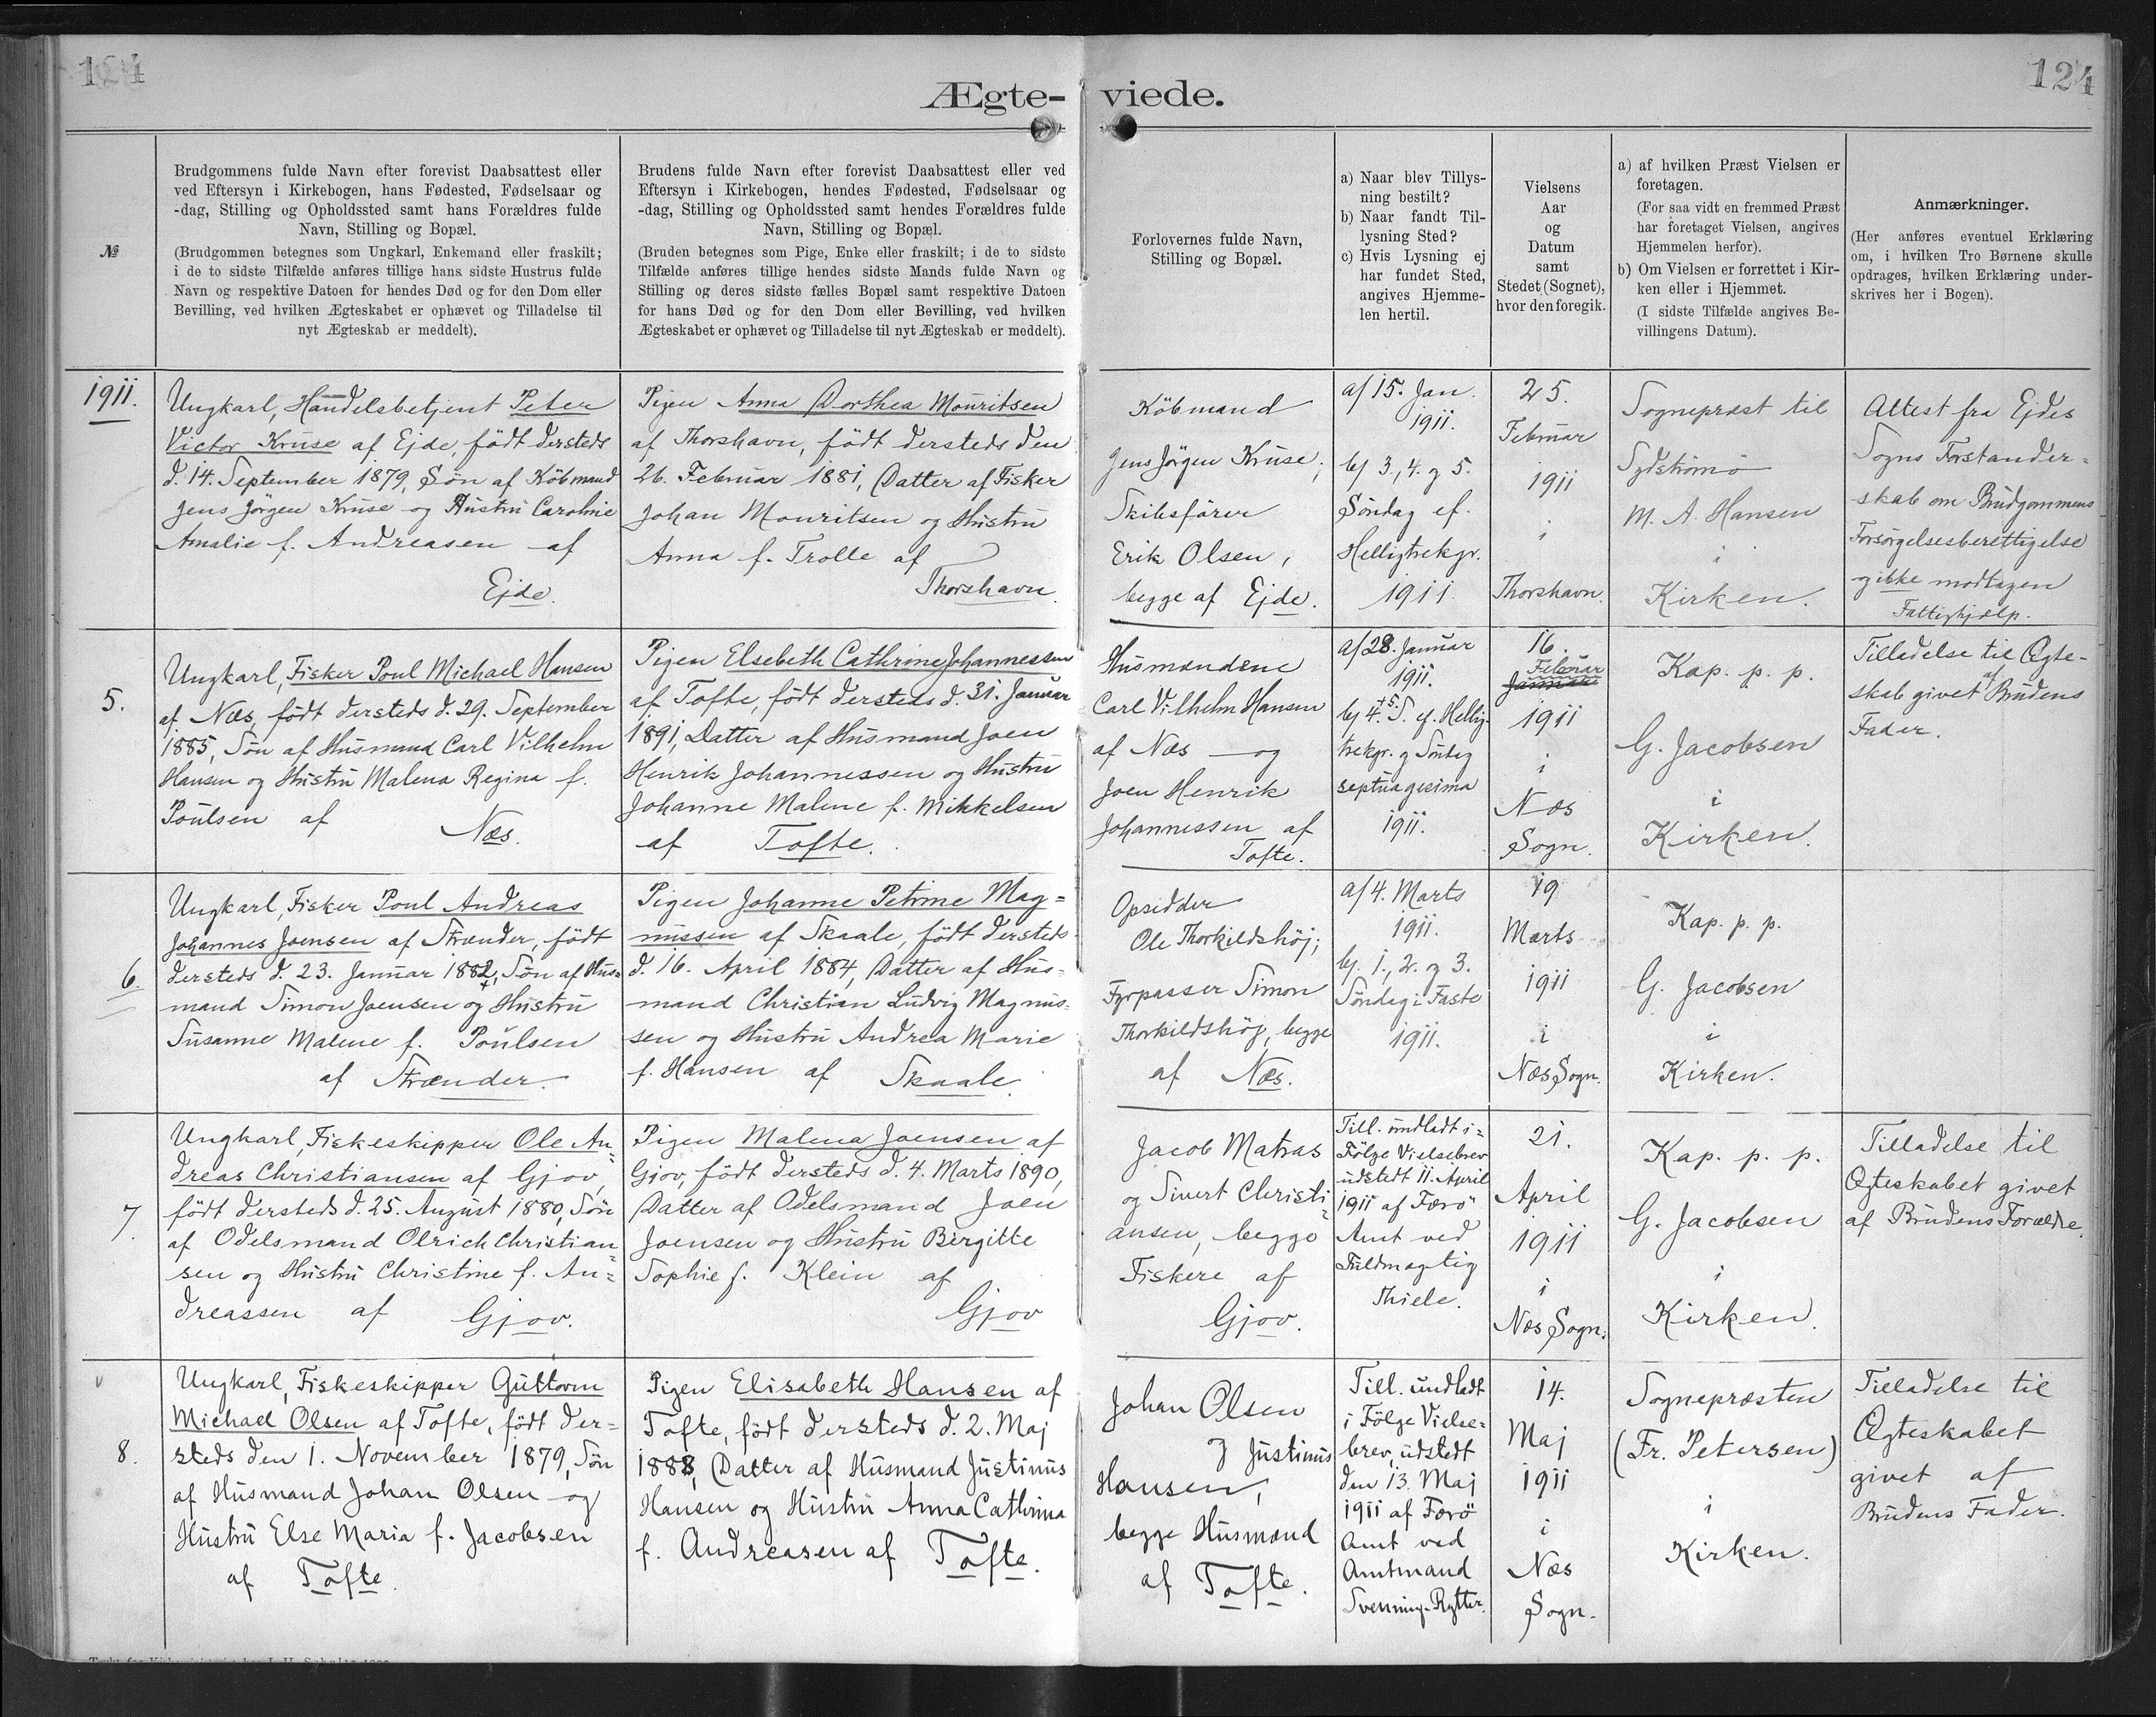 124
Ægte-
viede.
124
№
Brudgommens fulde Navn efter forevist Daabsattest eller
ved Eftersyn i Kirkebogen, hans Fødested, Fødselsaar og
-dag, Stilling og Opholdssted samt hans Forældres fulde
Navn, Stilling og Bopæl.
(Brudgommen betegnes som Ungkarl, Enkemand eller fraskilt;
i de to sidste Tilfælde anføres tillige hans sidste Hustrus fulde
Navn og respektive Datoen for hendes Død og for den Dom eller
Bevilling, ved hvilken Ægteskabet er ophævet og Tilladelse til
nyt Ægteskab er meddelt).
Brudens fulde Navn efter forevist Daabsattest eller ved
Eftersyn i Kirkebogen, hendes Fødested, Fødselsaar og
-dag, Stilling og Opholdssted samt hendes Forældres fulde
Navn, Stilling og Bopæl.
(Bruden betegnes som Pige, Enke eller fraskilt; i de to sidste
Tilfælde anføres tillige hendes sidste Mands fulde Navn og
Stilling og deres sidste fælles Bopæl samt respektive Datoen
for hans Død og for den Dom eller Bevilling, ved hvilken
Ægteskabet er ophævet og Tilladelse til nyt Ægteskab er meddelt).
Forlovernes fulde Navn,
Stilling og Bopæl.
a) Naar blev Tillys-
ning bestilt?
b) Naar fandt Til-
lysning Sted?
c) Hvis Lysning ej
har fundet Sted,
angives Hjemme-
len hertil.
Vielsens
Aar
og
Datum
samt
Stedet (Sognet),
hvor den foregik.
a) af hvilken Præst Vielsen er
foretagen.
(For saa vidt en fremmed Præst
har foretaget Vielsen, angives
Hjemmelen herfor).
b) Om Vielsen er forrettet i Kir-
ken eller i Hjemmet.
(I sidste Tilfælde angives Be-
villingens Datum).
Anmærkninger.
(Her anføres eventuel Erklæring
om, i hvilken Tro Børnene skulle
opdrages, hvilken Erklæring under-
skrives her i Bogen).
1911.
Ungkarl, Handelsbetjent Peter
Victor Kruse af Ejde, född dersteds
d. 14. September 1879, Søn af Købmand
Jens Jörgen Kruse og Hustru Caroline
Amalie f. Andreasen af
Ejde.
Pigen Anna Dorthea Mouritsen
af Thorshavn, född dersteds den
26. Februar 1881, Datter af Fisker
Johan Mouritsen og Hustru
Anna f. Trolle af
Thorshavn.
Köbmand
Jens Jörgen Kruse;
Skibsförer
Erik Olsen,
begge af Ejde.
a/ 15. Jan.
1911.
b/ 3., 4. og 5.
Söndag ef.
Helligtrekgr.
1911
25.
Februar
1911
i
Thorshavn.
Sognepræst til
Sydströmö
M. A. Hansen
i
Kirken.
Attest fra Ejdes
Sogns Forstander-
skab om Brudgommens
Forsörgelsesberettigelse
og ikke modtagen
Fattighjælp.
5.
Ungkarl, Fisker Poul Michael Hansen
af Næs, födt dersteds d. 29. September
1885, Søn af Husmand Carl Vilhelm
Hansen og Hustru Malena Regina f.
Poulsen af
Næs.
Pigen Elsebeth Cathrine Johannessen
af Tofte, födt dersteds d. 31. Januar
1891, Datter af Husmand Joen
Henrik Johannessen og Hustru
Johanne Malene f. Mikkelsen
af Tofte.
Husmændene
Carl Vilhelm Hansen
af Næs og
Joen Henrik
Johannessen af
Tofte.
a/ 28. Januar
1911.
b/ 4. + 5. S. ef. Hellig
trekgr. og Söndag
septuagesima
1911.
16.
Februar
Januar
1911
i
Næs
Sogn.
Kap. p. p.
G. Jacobsen
i
Kirken.
Tilladelse til Ægte-
skab givet af Brudens
Fader.
6.
Ungkarl, Fisker Poul Andreas
Johannes Joensen af Strænder, födt
dersteds d. 23. Januar 1882, Søn af Hus=
mand Simon Joensen og Hustru
Susanne Malene f. Poulsen
af Strænder.
Pigen Johanne Petrine Mag=
nussen af Skaale, födt dersteds
d. 16. April 1884, Datter af Hus=
mand Christian Ludvig Magnus=
sen og Hustru Andrea Marie
f. Hansen af Skaale.
Opsidder
Ole Thorkildshöj;
Fyrpasser Simon
Thorkildshöj, begge
af Næs.
a/ 4. Marts
1911.
b/ 1., 2. og 3.
Söndag i Faste
1911.
19
Marts
1911
i
Næs Sogn.
Kap. p. p.
G. Jacobsen
i
Kirken.
7.
Ungkarl, Fiskeskipper Ole An=
dreas Christiansen af Gjov,
födt dersteds d. 25. August 1880, Søn
af Odelsmand Olrich Christian=
sen og Hustru Christine f. An=
dreassen af Gjov.
Pigen Malena Joensen af
Gjov, födt dersteds d. 4. Marts 1890,
Datter af Odelsmand Joen
Joensen og Hustru Birgitte
Sophie f. Klein af
Gjov
Jacob Matras
og Sivert Christi=
ansen, begge
Fiskere af
Gjov.
Till. undladt i=
Fölge Vielsebrev
udstedt 11. April
1911 af Færö
Amt ved
Fuldmægtig
Thiele.
21.
April
1911
i
Næs Sogn.
Kap. p. p.
G. Jacobsen
i
Kirken.
Tilladelse til
Ægteskabet givet
af Brudens Forældre.
8.
Ungkarl, Fiskeskipper Guttorm
Michael Olsen af Tofte, födt der=
steds den 1. November 1879, Søn
af Husmand Johan Olsen og
Hustru Else Maria f. Jacobsen
af Tofte.
Pigen Elisabeth Hansen af
Tofte, födt dersteds d. 2. Maj
1888, Datter af Husmand Justinus
Hansen og Hustru Anna Cathrina
f. Andreasen af Tofte.
Johan Olsen
og Justinus
Hansen,
begge Husmænd
af Tofte.
Till. undladt
i Fölge Vielse=
brev, udstedt
den 13. Maj
1911 af Færö
Amt ved
Amtmand
Svenning-Rytter.
14.
Maj
1911
i
Næs
Sogn.
Sognepræsten
(Fr. Petersen)
i
Kirken.
Tilladelse til
Ægteskabet
givet af
Brudens Fader.